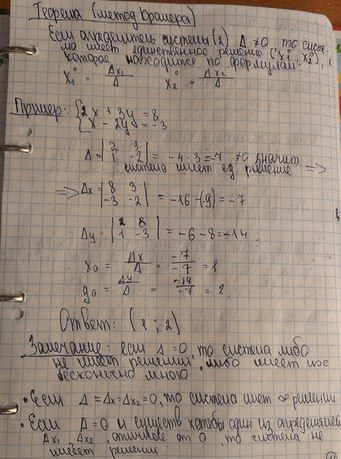 Теорема (метод Крамера)
Если определитель системы (2) Δ ≠ 0, то сист-
ма имеет единственное решение (x₁⁰; x₂⁰),
которое находится по формулам:
x₁⁰ = Δx₁/Δ x₂⁰ = Δx₂/Δ
Пример: {2x + 3y = 8
x - 2y = -3
Δ = |2 3| = -4-3=-7 ≠0 значит
|1 -2| система имеет ед. решение =>
=> Δx = |8 3| = -16-(-9) = -7
|-3 -2|
Δy = |2 8| = -6-8=-14
|1 -3|
x₀ = Δx/Δ = -7/-7 = 1
y₀ = Δy/Δ = -14/-7 = 2
Ответ: (1; 2)
Замечание: если Δ=0 то система либо
не имеет решений, либо имеет их
бесконечно много
• Если Δ=Δx₁=Δx₂=0, то система имеет ∞ решений
• Если Δ=0 и существ хотябы один из определителей
Δx₁, Δx₂, отличное от 0, то система не
имеет решения